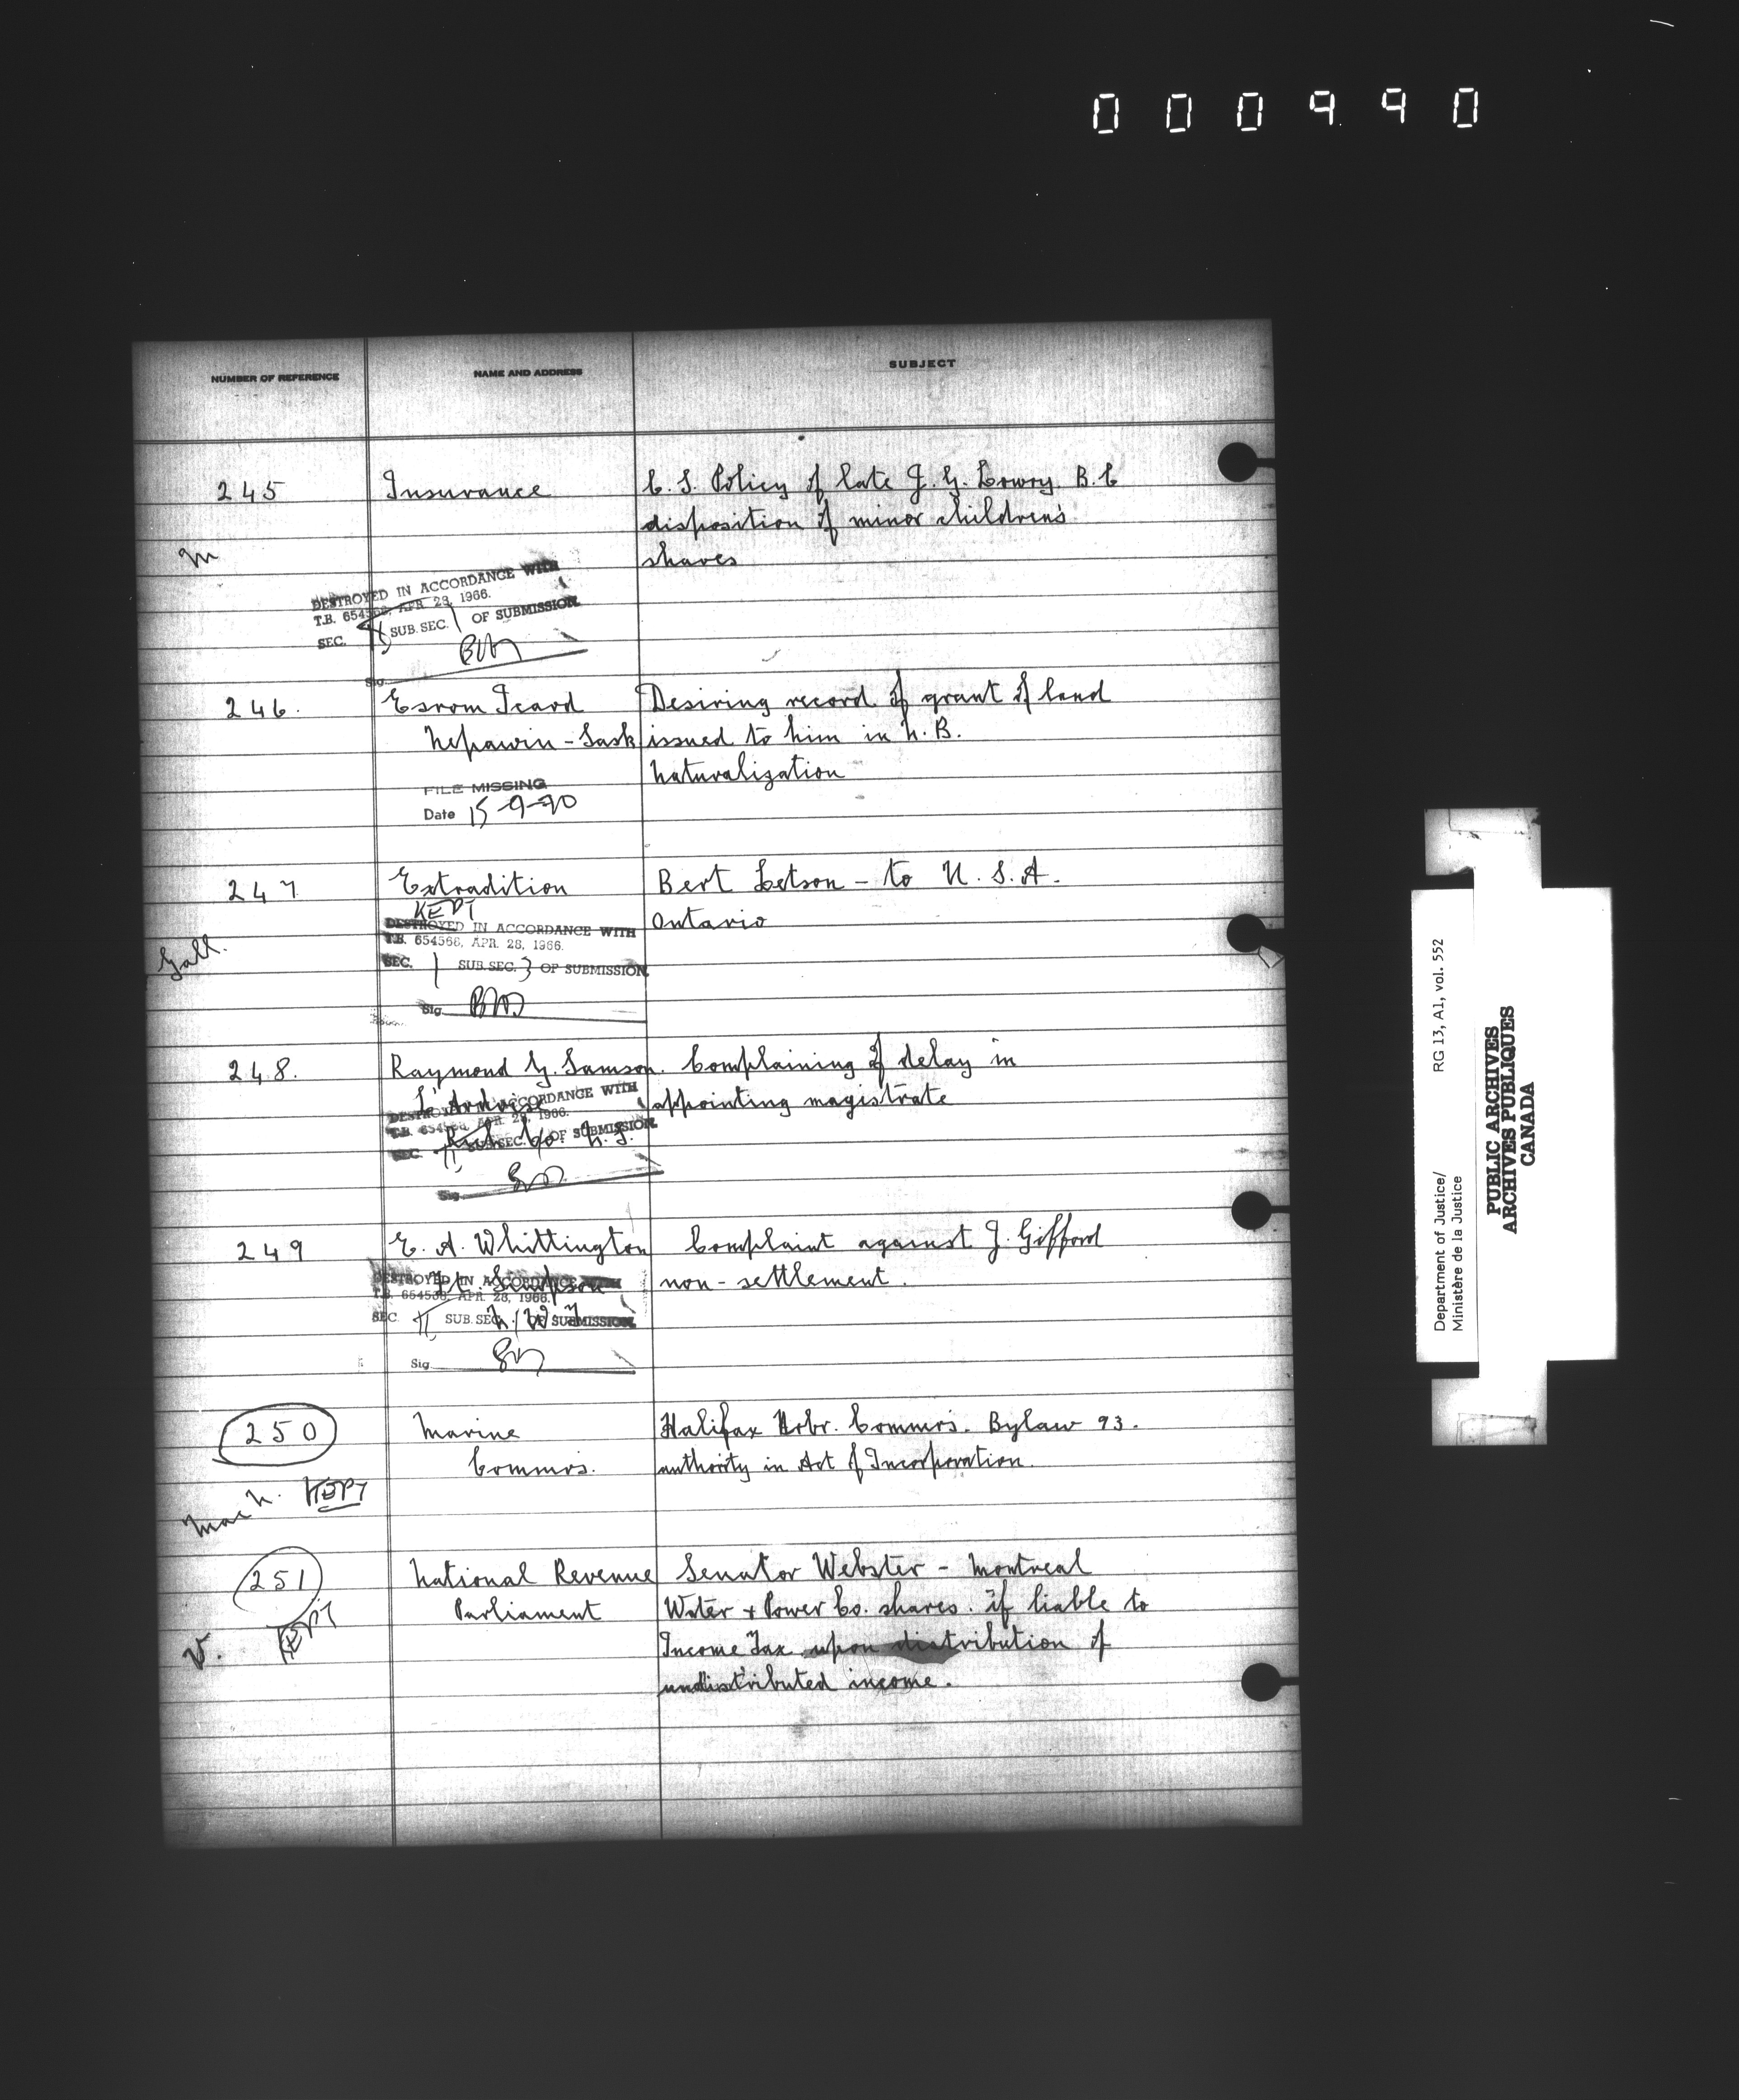 000990
NUMBER OF REFERENCE NAME AND ADDRESS SUBJECT
245 Insurance C. S. Policy of late J. G. Lowry B.C
disposition of minor children's
m shares
DESTROYED IN ACCORDANCE WITH
T.B. 654568, APR. 28, 1966.
SEC. SUB. SEC. 1 OF SUBMISSION
Sig.
246. Esrom Icard Desiring record of grant of land
Nipawin - Sask issued to him in N.B.
Naturalization
FILE MISSING
Date 15-9-70
247 Extradition Bert Letson - to U.S.A.
KEPT Ontario
DESTROYED IN ACCORDANCE WITH
Gall. T.B. 654568, APR. 28, 1966.
SEC. 1 SUB. SEC. 3 OF SUBMISSION
Sig.
248. Raymond G. Samson. Complaining of delay in
L'Ardoise appointing magistrate
Rich. Co. N.S.
DESTROYED IN ACCORDANCE WITH
T.B. 654568, APR. 28, 1966.
SEC. SUB. SEC. OF SUBMISSION
Sig.
249 E. A. Whittington Complaint against J. Gifford
Ft. Simpson non-settlement.
N.W.T.
DESTROYED IN ACCORDANCE WITH
T.B. 654568, APR. 28, 1966.
SEC. SUB. SEC. OF SUBMISSION
Sig.
250 Marine Halifax Hrbr. Commrs. Bylaw 93.
Commrs. authority in Act of Incorporation.
Mac N. KEPT
251 National Revenue Senator Webster - Montreal
Parliament Water + Power Co. shares. if liable to
V. KEPT Income Tax upon distribution of
undistributed income.
Department of Justice/ RG 13, A1, vol. 552
Ministère de la Justice
PUBLIC ARCHIVES
ARCHIVES PUBLIQUES
CANADA